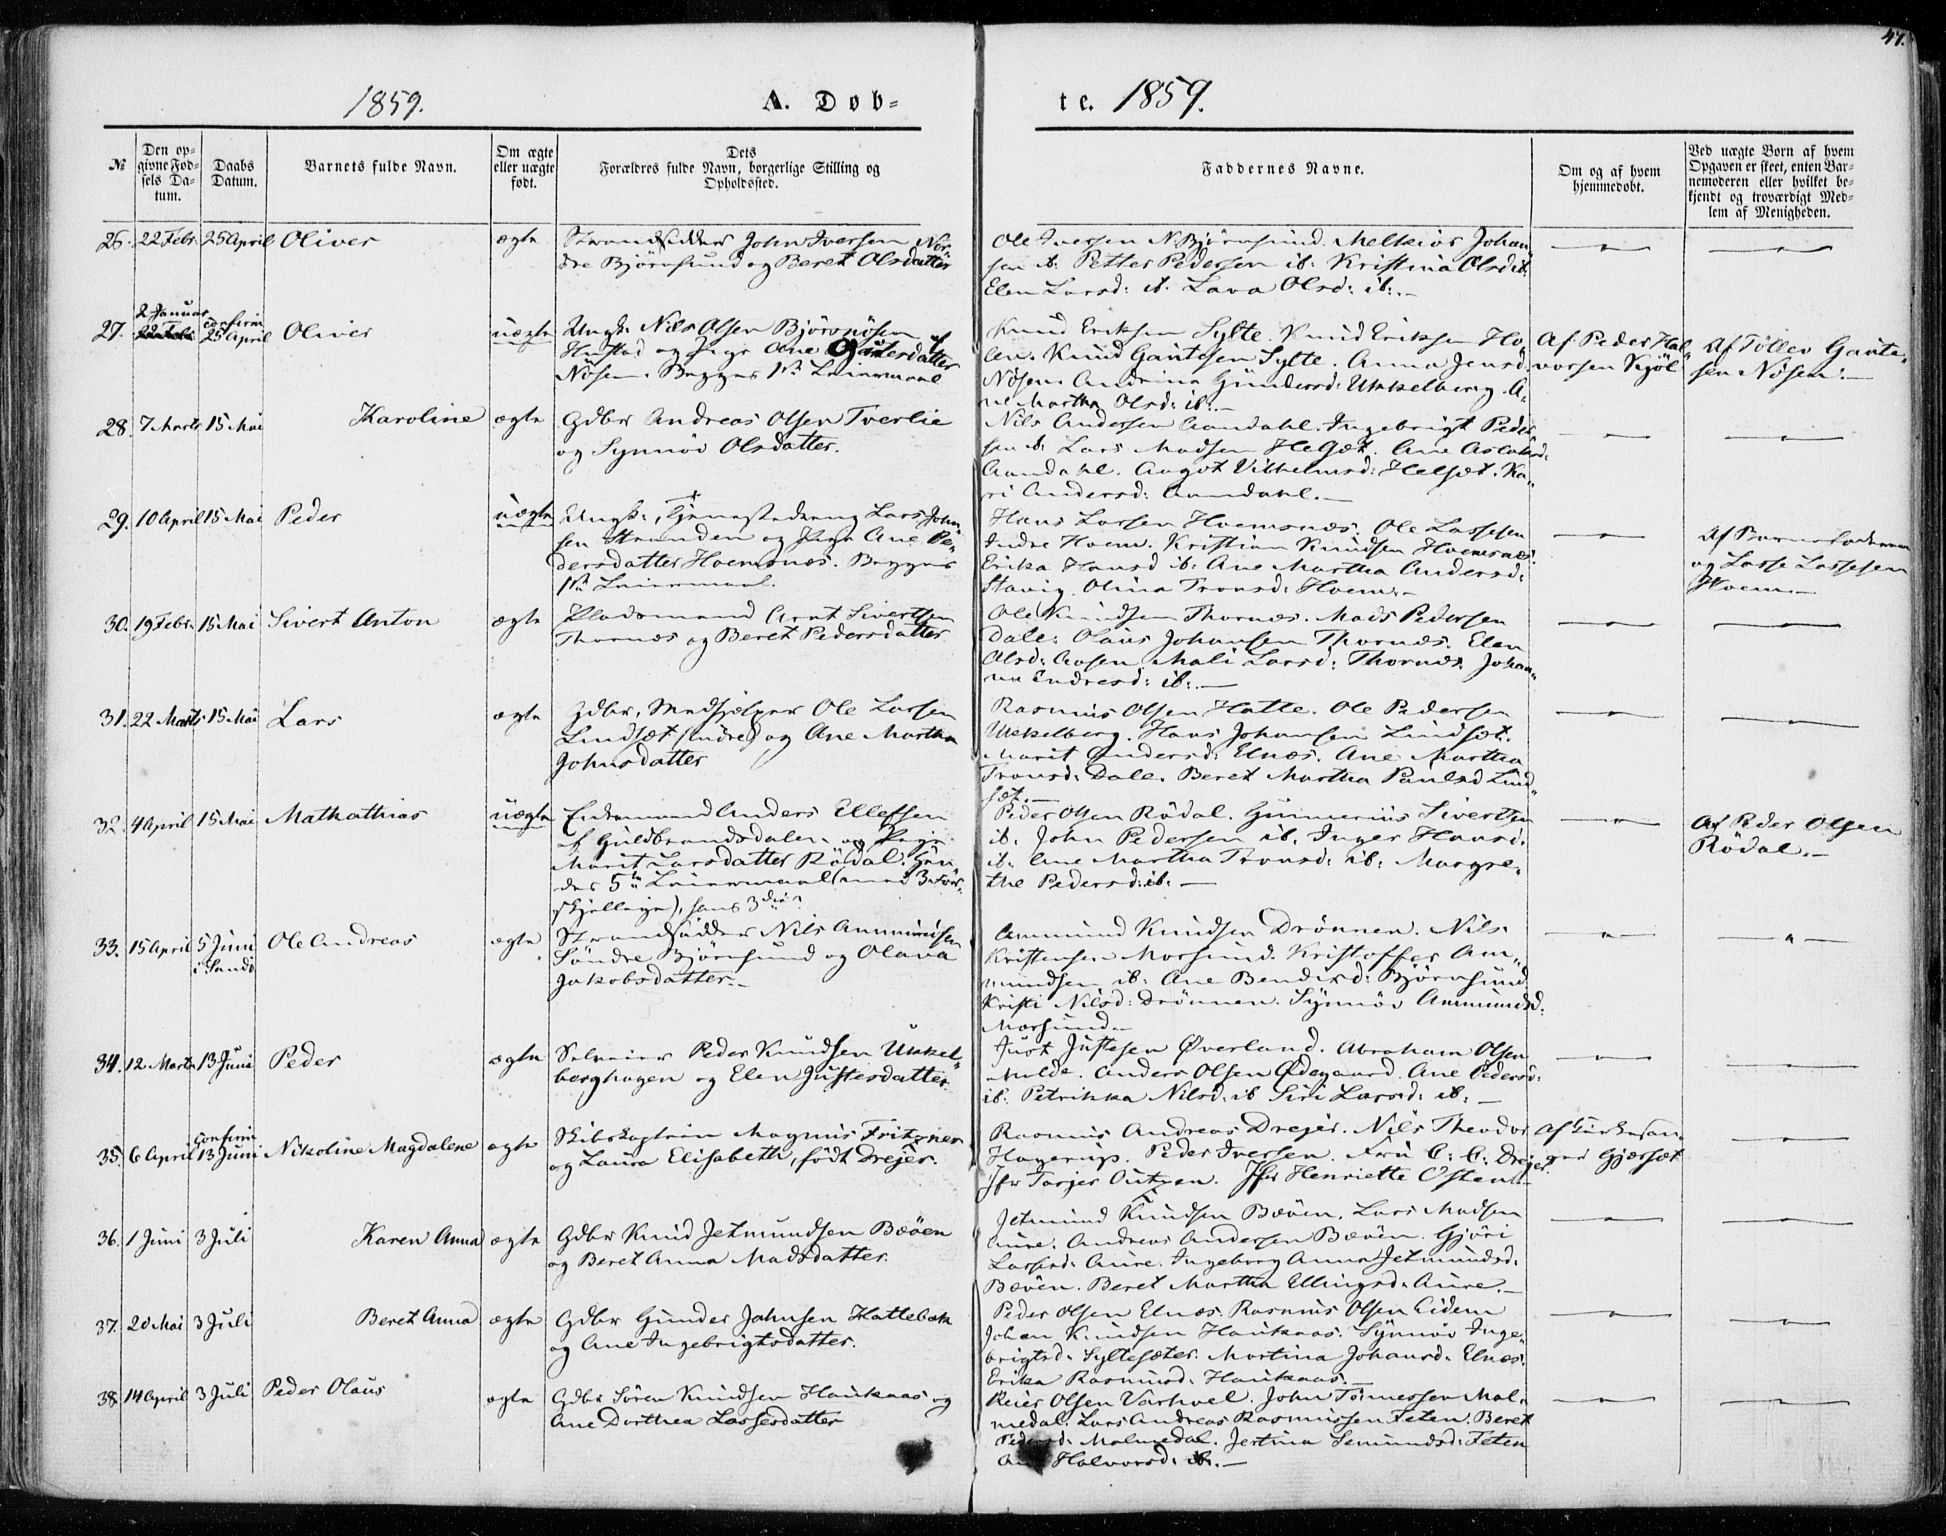 47.
1859.
A. Døb=
te. 1859.
№
Den op=
givne Fød=
sels Da=
tum.
Daabs
Datum.
Barnets fulde Navn.
Om ægte
eller uægte
født.
Dets
Forældres fulde Navn, borgerlige Stilling og
Opholdssted.
Faddernes Navne.
Om og af hvem
hjemmedøbt.
Ved uægte Børn af hvem
Opgaven er skeet, enten Bar=
nemoderen eller hvilket be=
kjendt og troværdigt Med=
lem af Menigheden.
26. 22 Febr. 25 April Oliver ægte
Strandsidder John Iversen Nör-
dre Björnsund og Beret Olsdatter
Ole Iversen N. Björnsund. Melkior Johan-
sen ib: Petter Pedersen ib: Kristina Olsd ib:
Elen Larsd: ib. Lava Olsd: ib:.-
27. 2 Januar confirm 25 April Oliver uægte
Ungk: Nils Olsen Björnösen
Hustad og Pige Ane Gautesdatter
Nösen. Begges 1ste Leiermaal
Knud Eriksen Sylte. Knud Eriksen Ho-
len. Knud Gautesen Sylte. Anna Jensd.
Nösen. Andrina Gundersd: Ukkelberg. A-
ne Martha Olsd: ib:.-
Af Peder Hal-
vorsen Kjöl
Af Tollev Gaute-
sen Nösen.-
28. 7 Marts 15 Mai Karoline ægte
Gdbr Andreas Olsen Tverlie
og Synnöv Olsdatter.
Nils Andersen Aandahl. Ingebrigt Peder-
sen ib: Lars Madsen Helset. Ane Aslaksd:
Aandahl. Aagot Vilhelmsd: Helset. Ka-
ri Andersd: Aandahl.-
29. 10 April 15 Mai Peder uægte
Ungk:, Tjenestedreng Lars John-
sen Stranden og Pige Ane Pe-
dersdatter Hoemsnæs. Begges
1ste Leiermaal.
Hans Larsen Hoemsnæs. Ole Lassesen
Indre Hoem. Kristian Knudsen Hoemsnæs.
Erika Hansd ib: Ane Martha Andersd:
Stavig. Olina Tronsd: Hoem.-
Af Barnefaderen
og Lasse Lassesen
Hoem.-
30. 19 Febr. 15 Mai Sivert Anton ægte
Pladsmand Arnt Sivertsen
Thornæs og Beret Pedersdatter
Ole Knudsen Thornæs. Mads Pedersen
Dale. Olaus Johansen Thornæs. Elen
Olsd: Aasen. Mali Larsd: Thornæs. Johan-
na Endresd: ib:.-
31. 22 Marts 15 Mai Lars ægte
Gdbr, Medhjelper Ole Larsen
Lindset (indre) og Ane Martha
Johnsdatter
Rasmus Olsen Hatle. Ole Pedersen
Ukkelberg. Hans Johansen Lindset.
Marit Andersd: Elnæs. Ane Martha
Tronsd: Dale. Beret Martha Paulsd Lind-
set.-
32. 4 April 15 Mai Mathathias uægte
Enkemand Anders Ellefsen
af Guldbrandsdalen og Pige
Marit Larsdatter Rödal. Hen-
des 5te Leiermaal (med 3 for-
skjellige), hans 3die?
Peder Olsen Rödal. Gunnerius Sivertsen
ib. John Pedersen ib. Inger Hansd.
ib. Ane Martha Tronsd: ib: Margre-
the Pedersd: ib:-
Af Peder Olsen
Rödal.-
33. 15 April 5 Juni i Sandö Ole Andreas ægte
Strandsidder Nils Ammundsen
Söndre Björnsund og Olava
Jakobsdatter.-
Ammund Knudsen Drönnen. Nils
Kristensen Morsund. Kristoffer Am-
mundsen ib: Ane Bendixd: Björnsund
Kristi Nilsd: Drönnen. Synnöv Ammundsd:
Morsund.-
34. 12 Marts 13 Juni Peder ægte
Selveier Peder Knudsen Ukkel-
berghagen og Elen Justesdatter
Just Justesen Øverland. Abraham Olsen
Molde. Anders Olsen Ødegaard. Ane Pedersd:
ib: Petrikka Nilsd: ib Siri Larsd: ib:-
35. 6 April confirm. 13 Juni Nikoline Magdalene ægte
Skibskaptein Magnus Fritzner
og Laura Elisabeth, födt Drejer.
Rasmus Andreas Drejer. Nils Theodor
Hagerup. Peder Iversen. Fru C. C. Drejer
Jfr Torjer Outzen. Jfr Henriette Osten.-
36. 1 Juni 3 Juli Karen Anna ægte
Gdbr Knud Jetmundsen Bæöen
og Beret Anna Madsdatter.
Jetmund Knudsen Bæöen. Lars Madsen
Aure. Andreas Andersen Bæöen. Gjöri
Larsd: Aure. Ingeborg Anna Jetmundsd.
Bæöen. Beret Martha Ellingsd. Aure.-
37. 20 Mai 3 Juli Beret Anna ægte
Gdbr Gunder Johnsen Hatlebak
og Ane Ingebrigtsdatter.
Peder Olsen Elnæs. Rasmus Olsen Eidem
Johan Knudsen Haukaas. Synnöv Inge-
brigtsd. Syltesæter. Martina Johansd. Elnæs.
Erika Rasmusd. Haukaas.-
38 14 April 3 Juli Peder Olaus ægte
Gdbr Sören Knudsen Haukaas og
Ane Dorthea Lassesdatter
Reier Olsen Varhvel. John Tönnessen Mal-
medal. Lars Andreas Rasmussen Feten. Beret
Pedersd: Malmedal. Jertina Semundsd: Feten
Ane Halvorsd: ib:.-